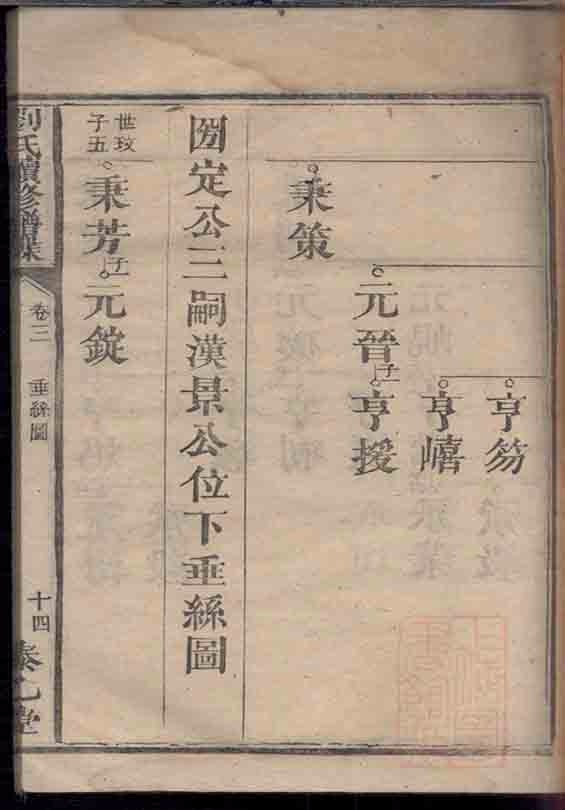 亨芴
亨嶬
元晉子一亨援
秉策
圀定公三嗣漢景公位下垂絲圖
世玟
子五
秉芳子一元錠
劉氏續修譜牒
卷三
垂絲圖
十四